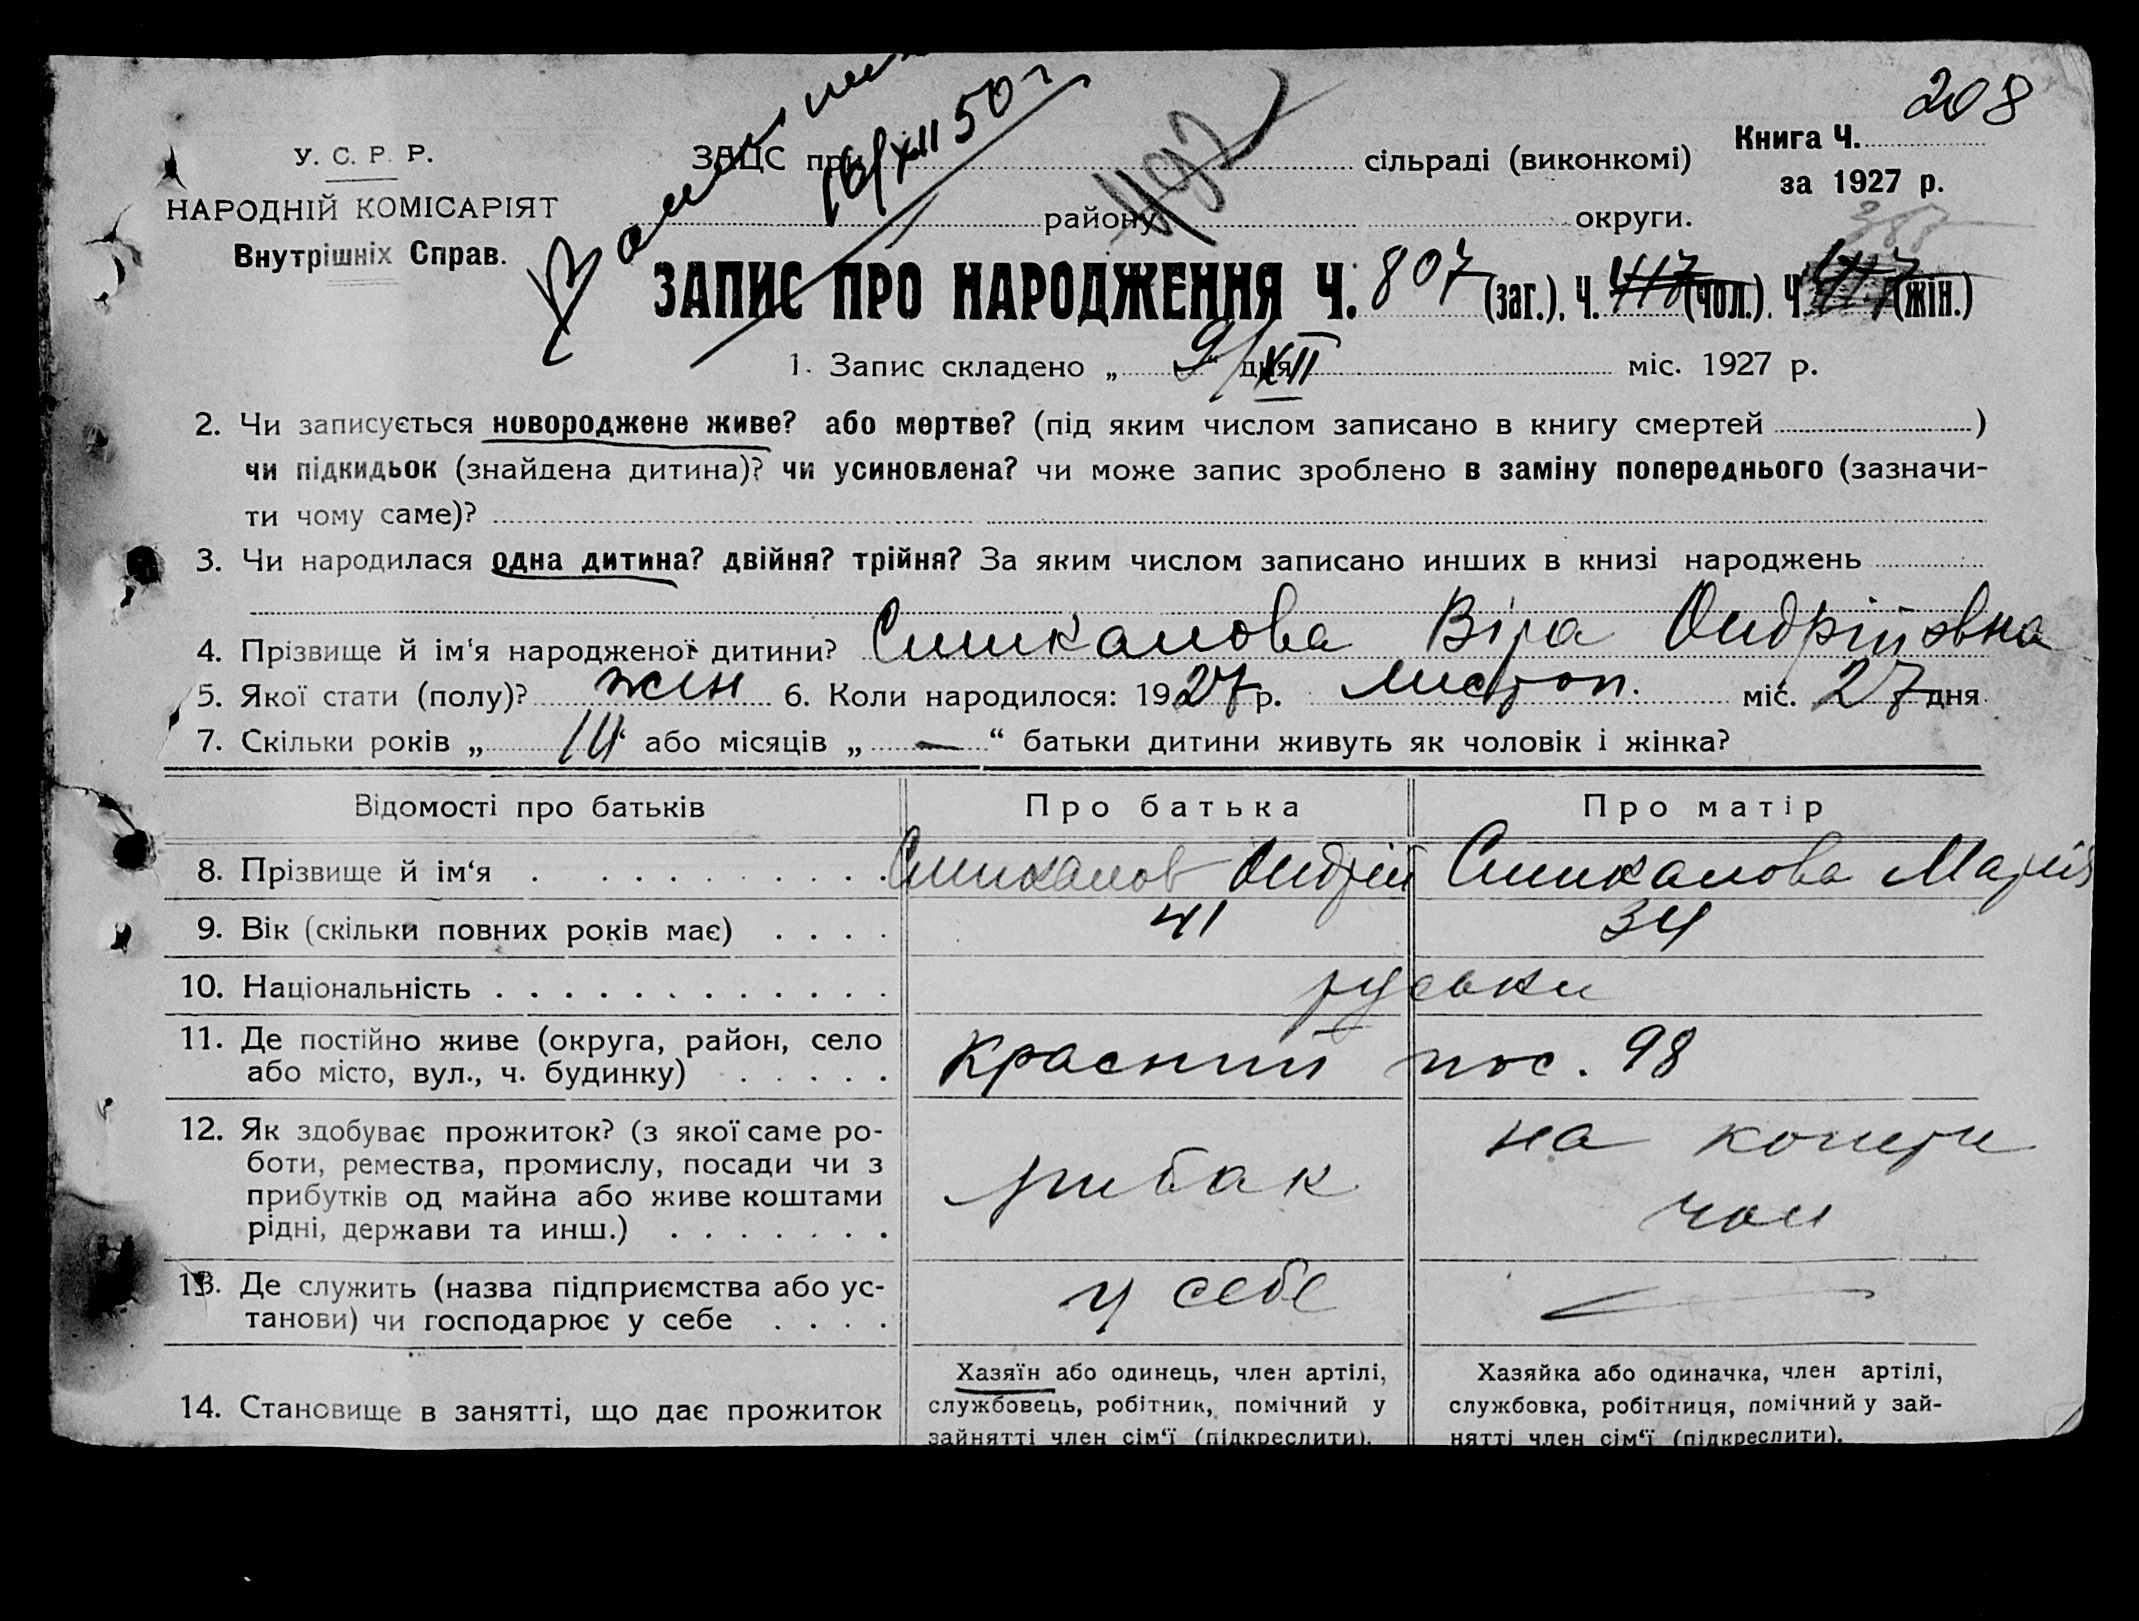 208
16/XII 50 г
492
У. С. Р. Р.
НАРОДНІЙ КОМІСАРІЯТ
Внутрішніх Справ.
ЗАЦС при сільраді (виконкомі)
району округи.
Книга Ч.
за 1927 р.
388
ЗАПИС ПРО НАРОДЖЕННЯ Ч. 807 (заг.). Ч. 417 (чол.). Ч. 417 (жін.)
1. Запис складено „ 9/XII “ дня міс. 1927 р.
2. Чи записується новороджене живе? або мертве? (під яким числом записано в книгу смертей )
чи підкидьок (знайдена дитина)? чи усиновлена? чи може запис зроблено в заміну попереднього (зазначи-
ти чому саме)?
3. Чи народилася одна дитина? двійня? трійня? За яким числом записано инших в книзі народжень
4. Прізвище й ім‘я народженої дитини? Сишкалова Віра Ондріївна
5. Якої стати (полу)? жін 6. Коли народилося: 1927 р. листоп. міс. 27 дня
7. Скільки років „ 14 “ або місяців „ — “ батьки дитини живуть як чоловік і жінка?
Відомості про батьків Про батька Про матір
8. Прізвище й ім‘я Сишкалов Ондрій Сишкалова Марія
9. Вік (скільки повних років має) 41 34
10. Національність руськи
11. Де постійно живе (округа, район, село
або місто, вул., ч. будинку) Красний пос. 98
12. Як здобуває прожиток? (з якої саме ро-
боти, ремества, промислу, посади чи з
прибутків од майна або живе коштами
рідні, держави та инш.) рибак на
чол
13. Де служить (назва підприємства або ус-
танови) чи господарює у себе у себе —
14. Становище в занятті, що дає прожиток
Хазяїн або одинець, член артілі,
службовець, робітник, помічний у
зайнятті член сім‘ї (підкреслити).
Хазяйка або одиначка, член артілі,
службовка, робітниця, помічний у зай-
нятті член сім‘ї (підкреслити).